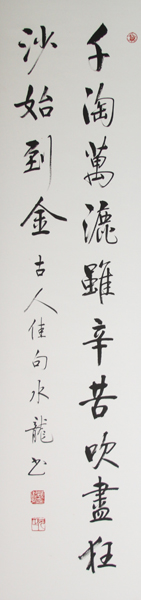 千淘萬漉雖辛苦吹盡狂
沙始到金古人佳句水龍书